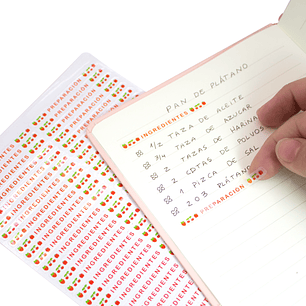 PAN DE PLÁTANO
INGREDIENTES
1/2 TAZA DE ACEITE
3/4 TAZA DE AZUCAR
2 TAZAS DE HARINA
2 CDTAS DE POLVOS
1 PIZCA DE SAL
2 O 3 PLÁTANOS
PREPARACION
PREPARACION
PREPARACION
PREPARACION
INGREDIENTES
INGREDIENTES
INGREDIENTES
INGREDIENTES
INGREDIENTES
INGREDIENTES
INGREDIENTES
INGREDIENTES